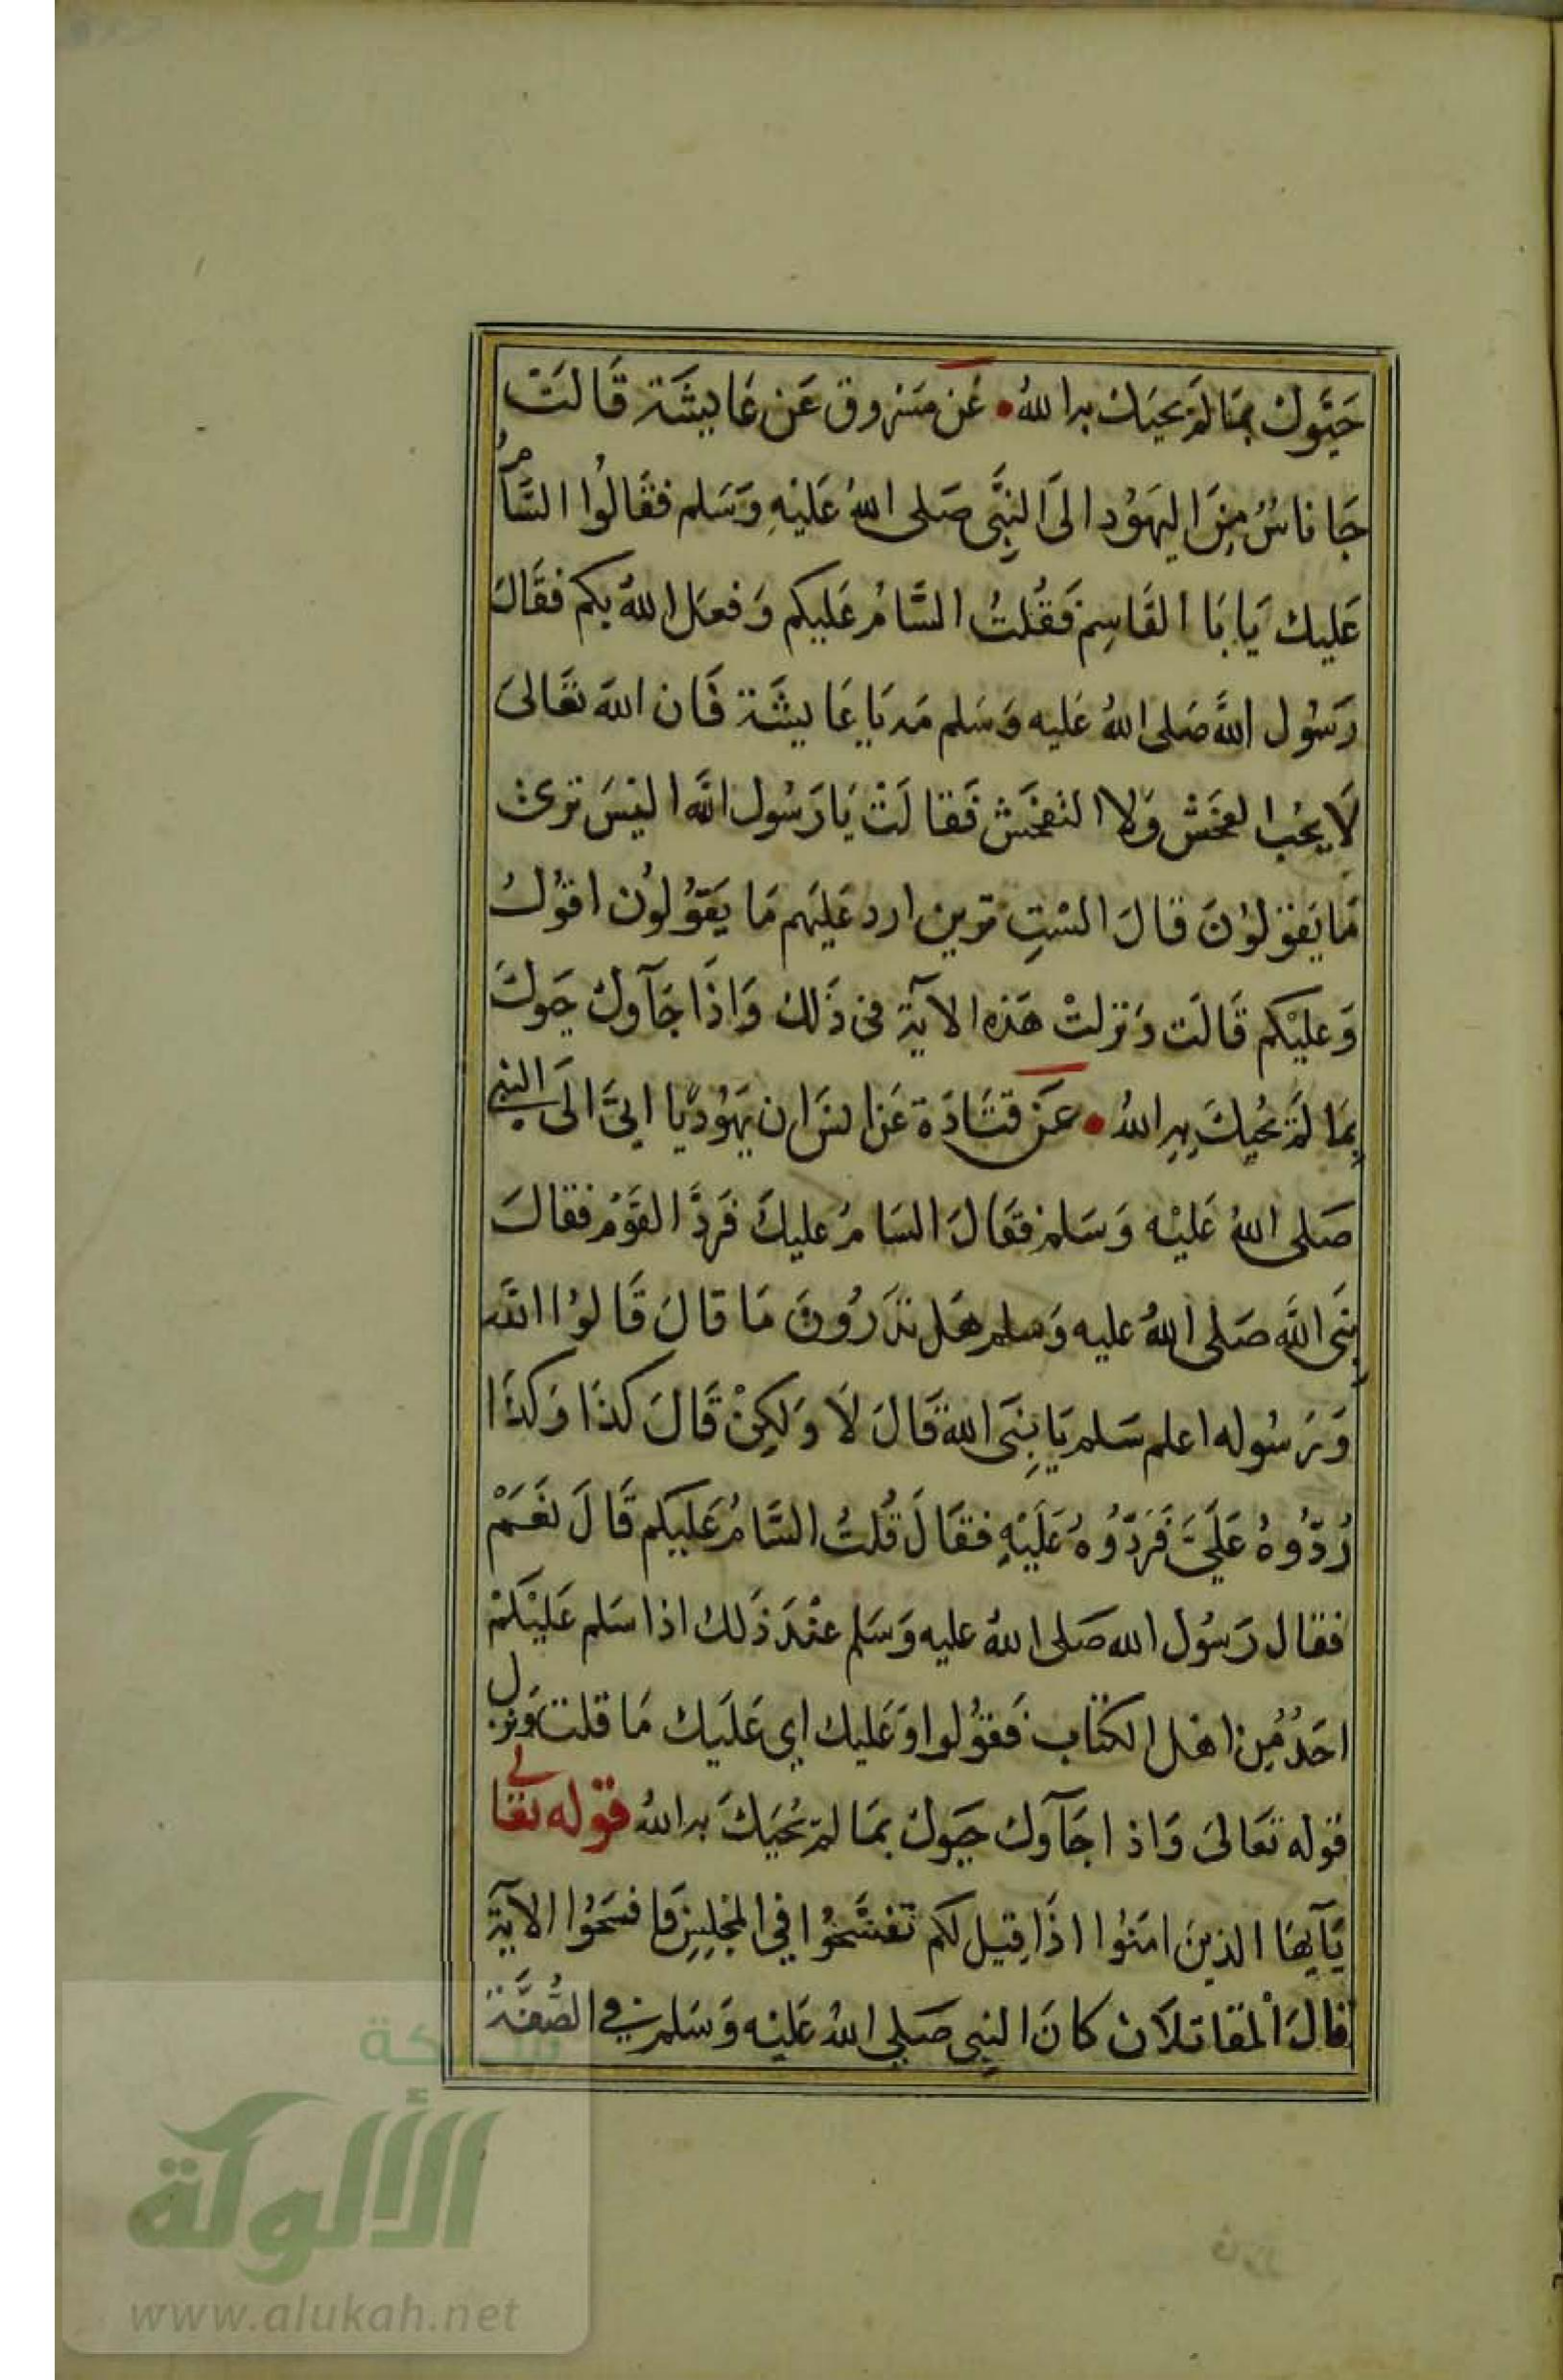 حَيَّوك بمَا لَمْ يحيك به اللهُ • عَن مَسْروق عَن عَايشَة قَالَتْ
جَا نَاسٌ مِنَ اليَهُود الَى النبِيَّ صَلى اللهُ عَليْهِ وَسَلم فقَالوُا السَّامُ
عَليك يَابَا القَاسِم فَقُلتُ السَّامُ عَليكم وَفعَل اللهُ بكم فقَالَ
رَسُول اللَّه صَلى اللهُ عَليه وَسَلم مَه يَا عَايشَة فَان اللهَ تعَالىَ
لَا يحُب الفحْشَ وَلا التفحّش فَقَالَتْ يَا رَسُول اللَّه اليْسَ ترى
مَا يَقوْلوُنَ قالَ السْتِ ترين ارد عَليَهم مَا يَقوُلوُن اقوُلُ
وَعليْكم قَالَت وَنزلتْ هَذه الآية فى ذَلك وَاذَا جَآوك حيوكَ
بِمَا لَمْ يُحيِكَ بِهِ اللهُ • عَنْ قتَادَة عَن انسَ ان يَهوُديًا اتىَ الَى النبي
صَلى اللهُ عَليْه وَسَلم فقَالَ السَامُ عليكَ فَردَّ القوَمُ فقالَ
نِبَى اللَّه صَلى اللهُ عليه وَسلم هَل تدَرُونَ مَا قالَ قَالوُا اللَّه
وَرَسُوله اعلم سَلم يَا نِبَى الله قَالَ لَا وَلكِنْ قَالَ كذَا وَكذَا
رُدّوُهُ عَلَىَّ فَرَدّوُهُ عَلَيْهِ فقَالَ قُلتُ السَّامُ عَليكم قَالَ نَعَمْ
فقال رَسُول الله صَلى اللهُ عليه وَسَلم عنْدَ ذَلك اذا سَلم عَليْكمْ
احَدٌ مِن اهْل الكتاب فَقوُلوا وَعَليك اي عَلَيك مَا قلت وَنزل
قوله تعَالىَ وَاذا جَآوك حيَوك بمَا لمْ يحُيَكَ به اللهُ قوله تعالى
يَآيهَا الذينَ امَنوُا اذَا قِيل لكم تفسَّحوُا في المَجْلِسِ فَافسَحُوا الآية
قالَ المقاتلَان كانَ النبِي صَلي اللهُ عَليْه وَسَلم في الصُّفَّة
شبكة
الألوكة
www.alukah.net